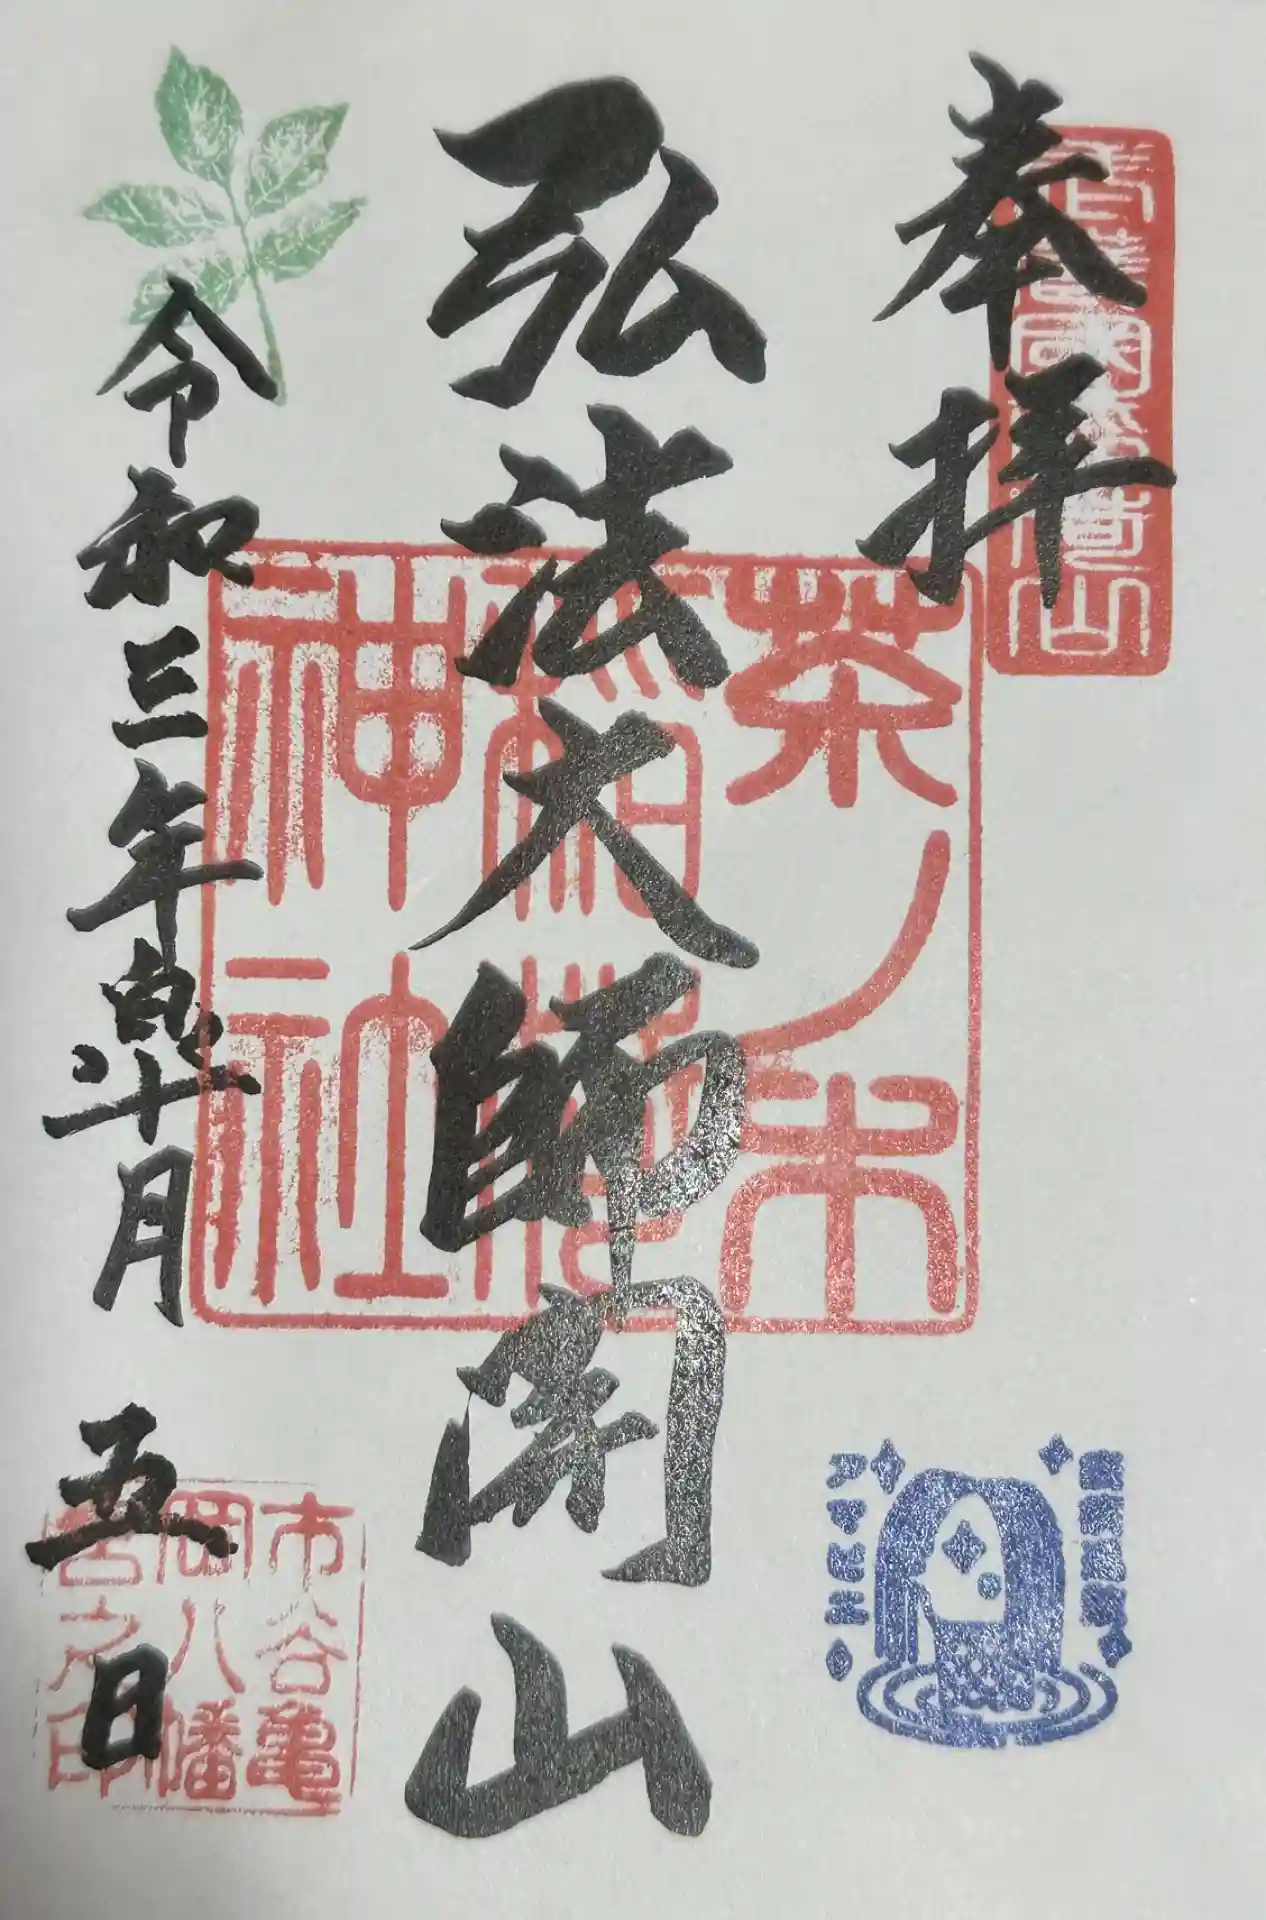 奉拝
弘法大師開山
令和三年皐月
五日
茶ノ木
稲荷
神社
市谷亀
岡八幡
宮之印